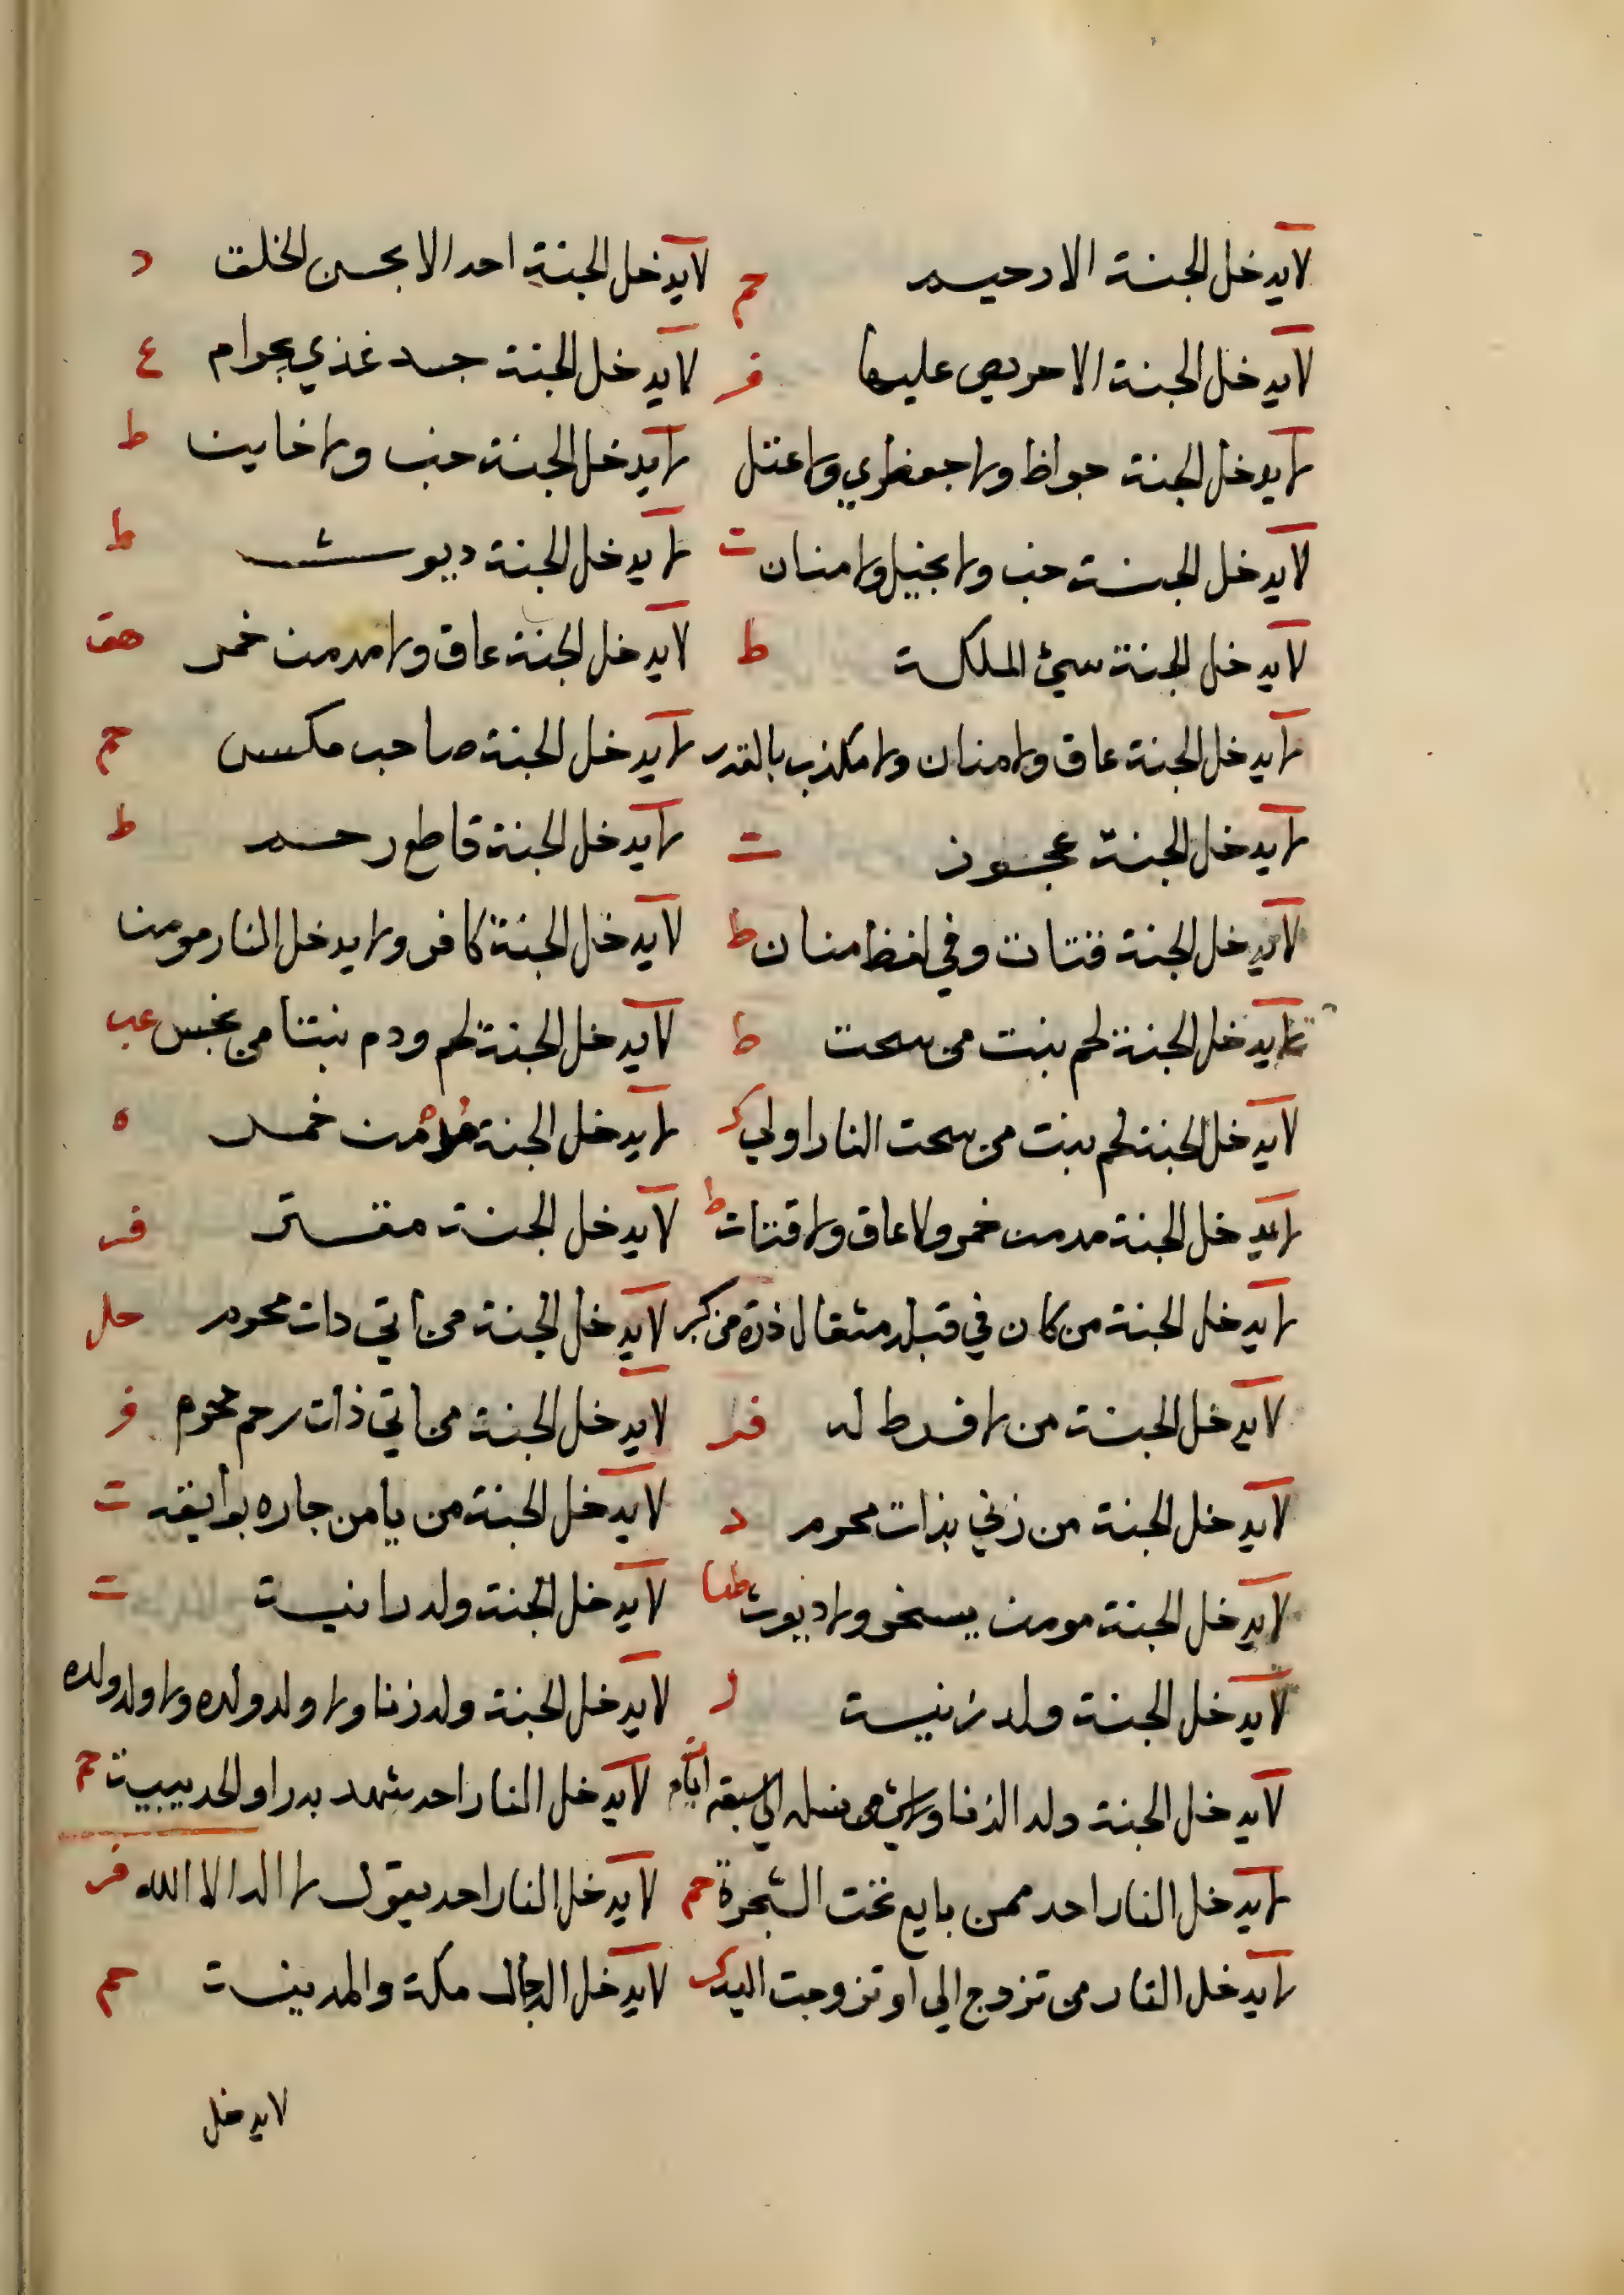 لا يدخل الجنة الا رحيم حم لا يدخل الجنة احد الا بحسن الخلق د
لا يدخل الجنة الا حريص عليها فر لا يدخل الجنة جسد غذي بحرام ع
لا يدخل الجنة جواظ ولا جعظري ولا عتل لا يدخل الجنة خب ولا خاين ط
لا يدخل الجنة خب ولا بخيل ولا منان ت لا يدخل الجنة ديوث ط
لا يدخل الجنة سيئ الملكة ط لا يدخل الجنة عاق ولا مدمن خمر هق
لا يدخل الجنة عاق ولا منان ولا مكذب بالقدر لا يدخل الجنة صاحب مكس حم
لا يدخل الجنة عجوز ت لا يدخل الجنة قاطع رحم ط
لا يدخل الجنة قتات وفي لفظ منان ط لا يدخل الجنة كافر ولا يدخل النار مومن
لا يدخل الجنة لحم بنت من سحت ط لا يدخل الجنة لحم ودم نبتا من نجس عب
لا يدخل الجنة لحم نبت من سحت النار اولي ك لا يدخل الجنة مدمن خمر ه
لا يدخل الجنة مدمن خمر ولا عاق ولا قتات ط لا يدخل الجنة مفتر فر
لا يدخل الجنة من كان في قلبه مثقال ذرة من كبر لا يدخل الجنة من اتي دات محرم حل
لا يدخل الجنة من لا فرط له فر لا يدخل الجنة من اتي ذات رحم محرم فر
لا يدخل الجنة من زني بذات محرم د لا يدخل الجنة من يامن جاره بوايقه ت
لا يدخل الجنة مومن ولا ديوث طيا لا يدخل الجنة ولد زانية ت
لا يدخل الجنة ولد زانية ل لا يدخل الجنة ولد زنا ولا ولد ولده ولا ولد ولده
لا يدخل الجنة ولد الزنا ولا شي من نسله الي سبعة اباء لا يدخل النار احد شهد بدرا والحديبية حم
لا يدخل النار احد ممن بايع تحت الشجرة حم لا يدخل النار احد يقول لا اله الا الله فر
لا يدخل النار من تزوج الي او تزوجت اليه ك لا يدخل الدجال مكة والمدينة حم
لا يدخل